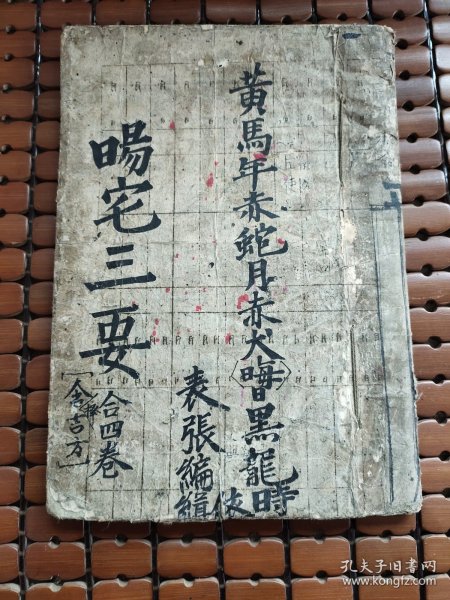 黄馬年赤蛇月赤犬(晦)日黑龍時
表張編緝
暘宅三要
合四卷
孔夫子旧书网
www.kongfz.com